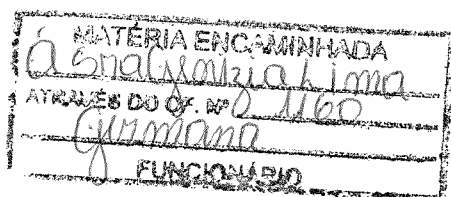 MATÉRIA ENCAMINHADA
á Sra Lima
ATRAVÉS DO OF. Nº 1160
Germana
FUNCIONÁRIO